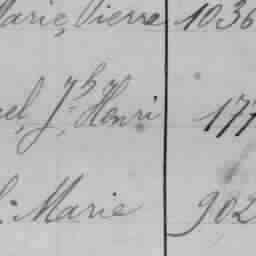 Marie, Pierre 1036
el, Jh Henri 177
Marie 902